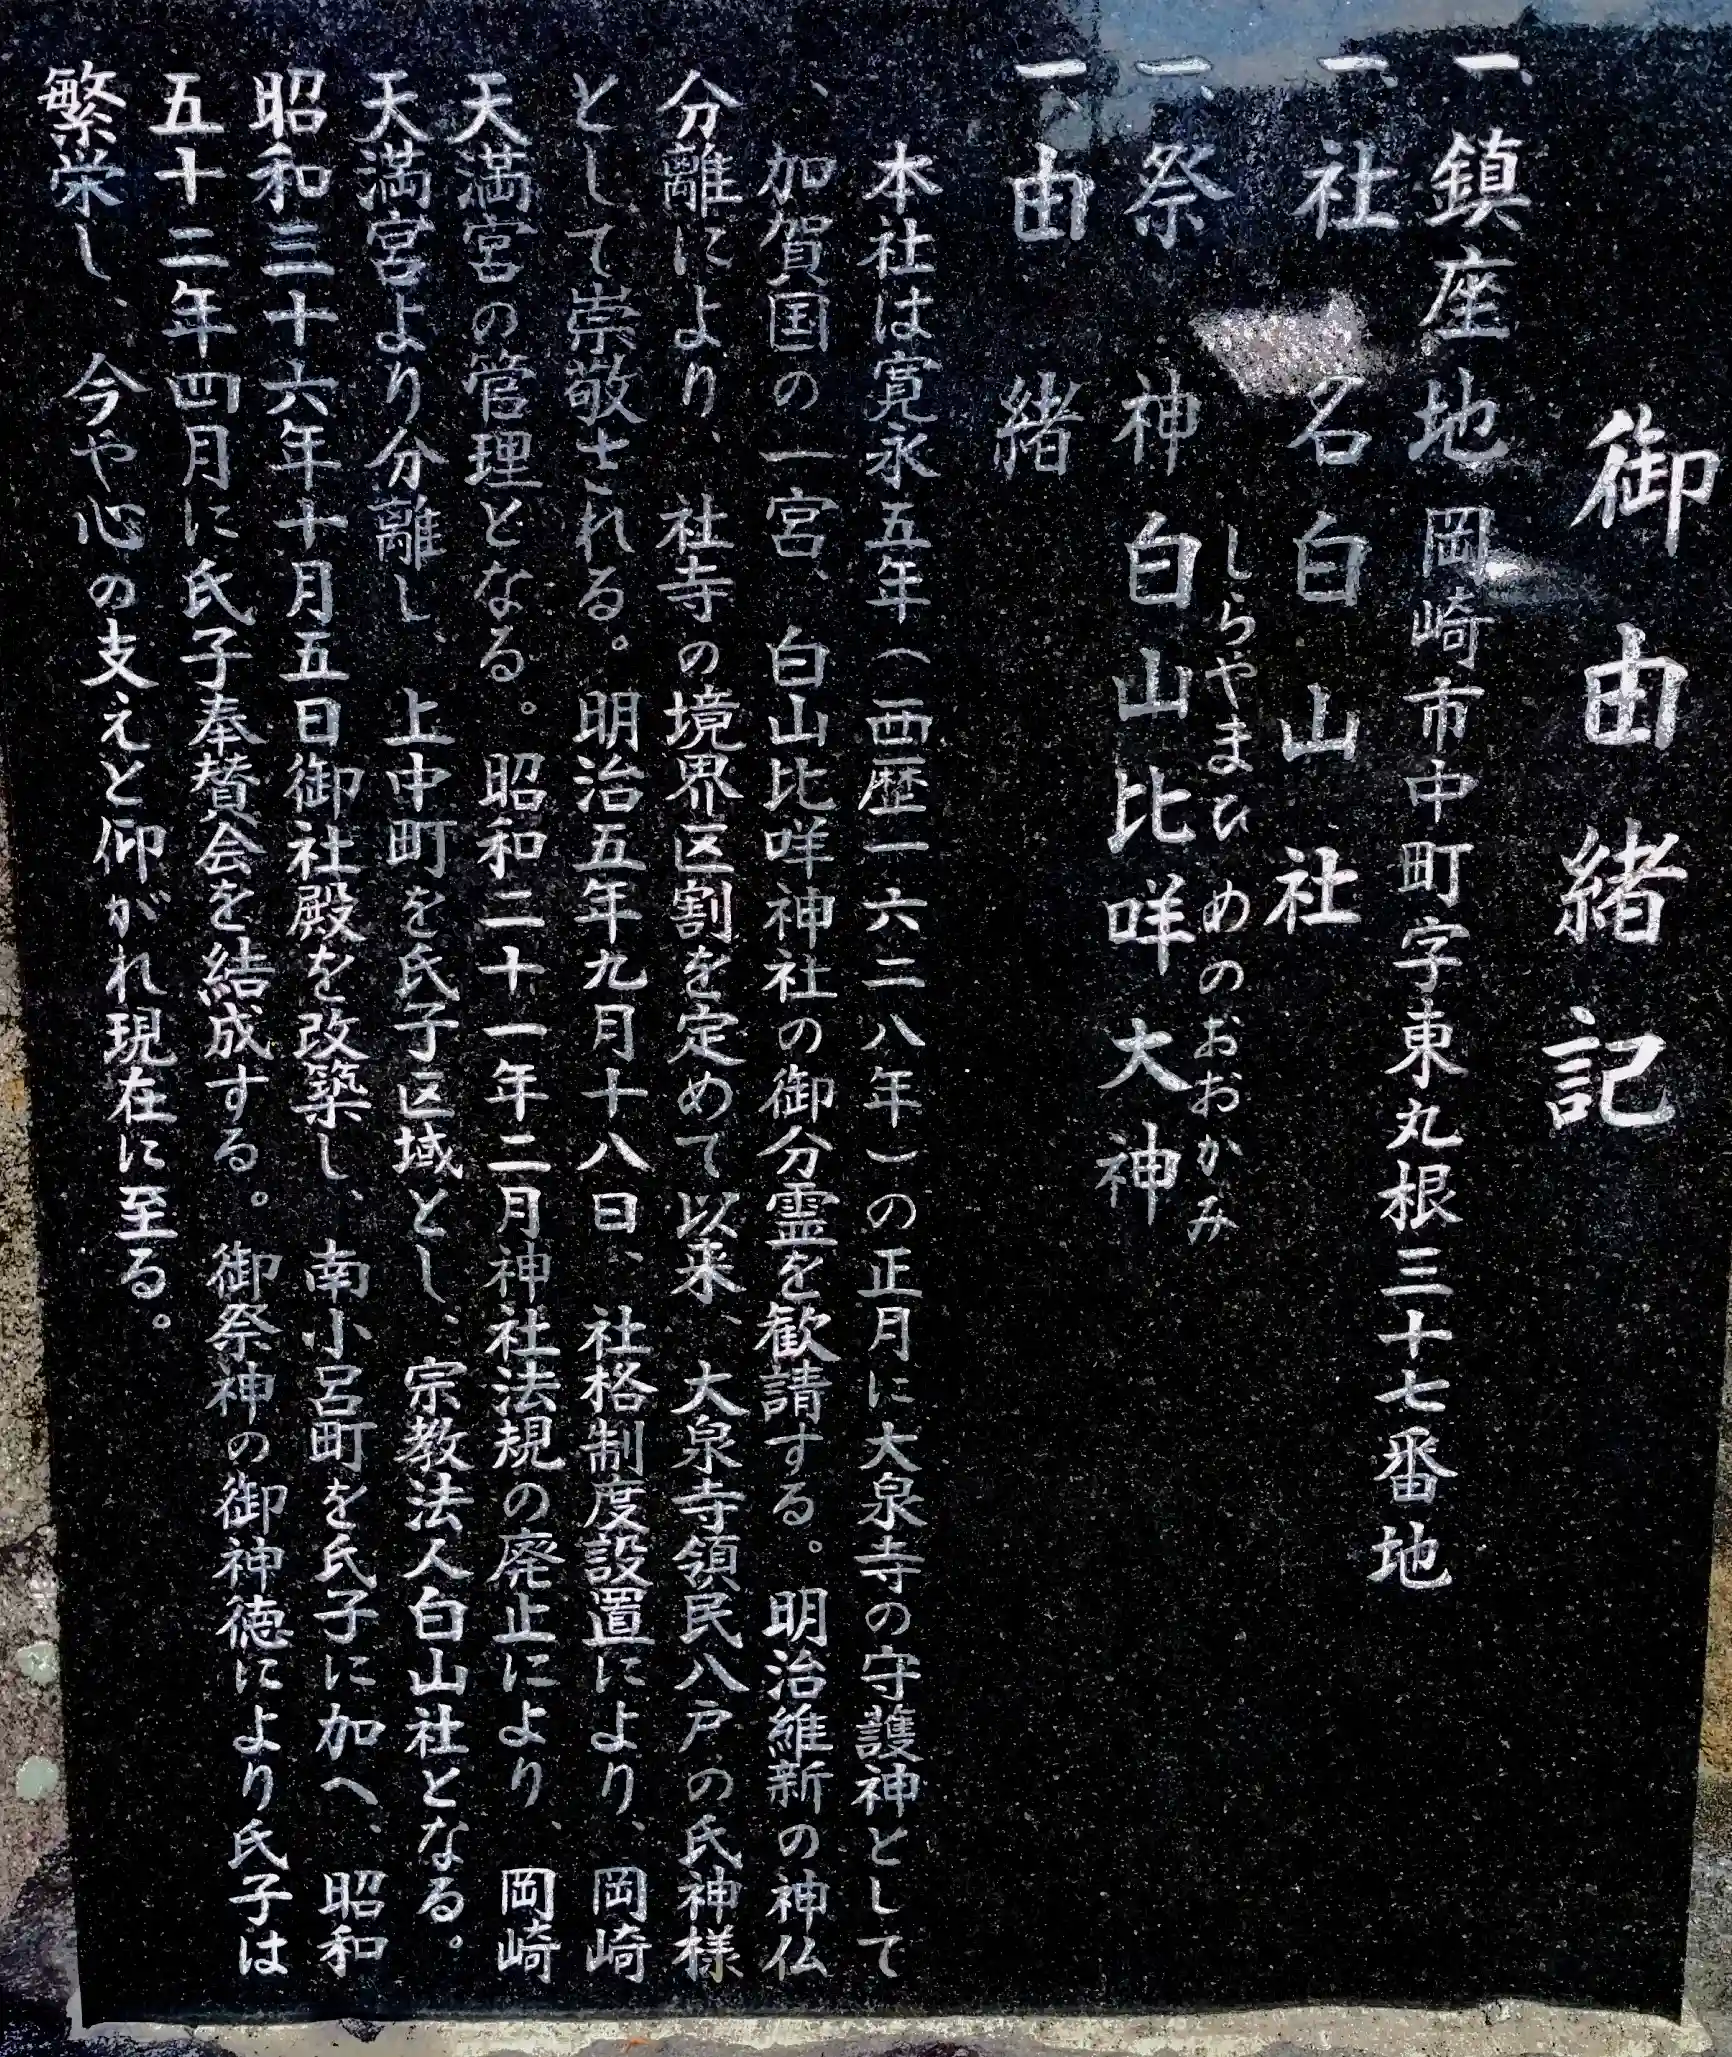 御由緒記
一、鎮座地 岡崎市中町字東丸根三十七番地
一、社名 白山社
しらやまひめのおおかみ
一、祭神 白山比咩大神
一、由緒
本社は寛永五年（西歴一六二八年）の正月に大泉寺の守護神として
、加賀国の一宮、白山比咩神社の御分霊を歓請する。明治維新の神仏
分離により、社寺の境界区割を定めて以来、大泉寺領民八戸の氏神様
として崇敬される。明治五年九月十八日、社格制度設置により、岡崎
天満宮の管理となる。昭和二十一年二月神社法規の廃止により、岡崎
天満宮より分離し 上中町を氏子区域とし、宗教法人白山社となる。
昭和三十六年十月五日御社殿を改築し、南小呂町を氏子に加へ、昭和
五十二年四月に氏子奉賛会を結成する。御祭神の御神徳により氏子は
繁栄し、今や心の支えと仰がれ現在に至る。